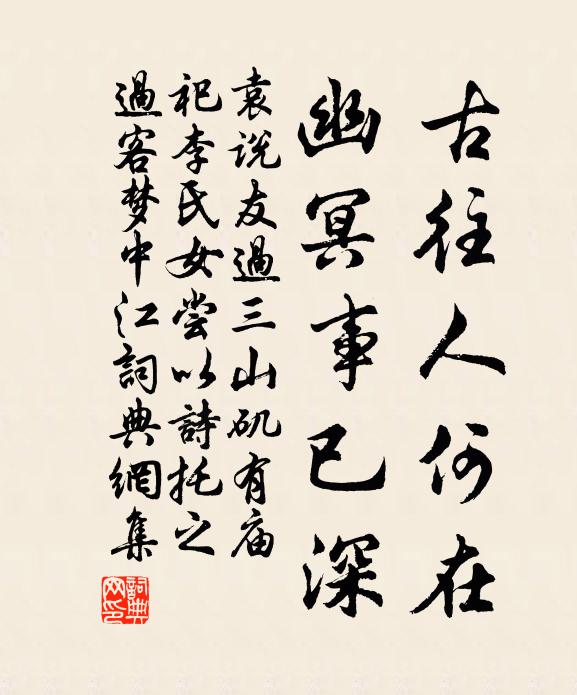 古往人何在
幽冥事已深
袁说友過三山矶有庙
祀李氏女尝以詩托之
過客梦中江詞典網集
詞典网印